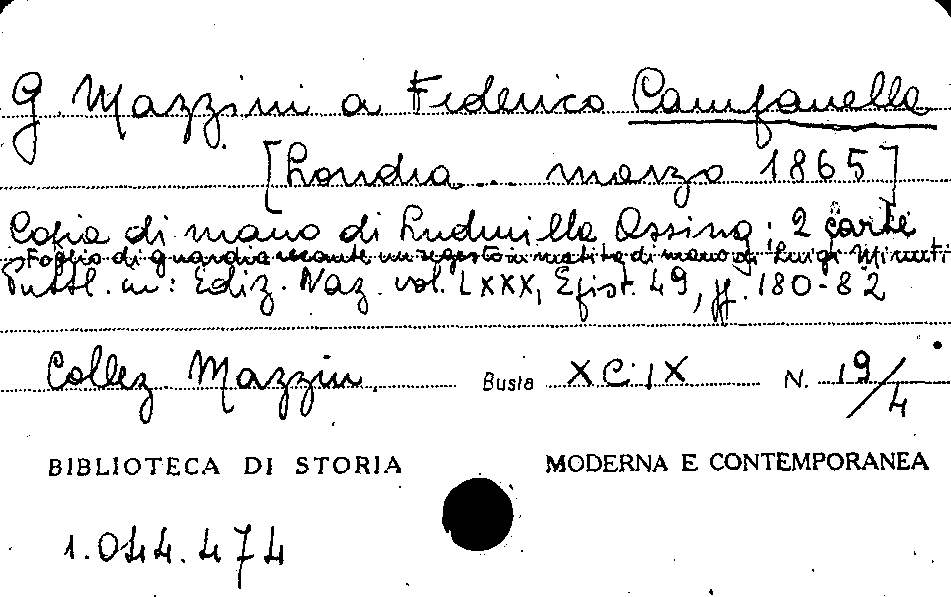 G. Mazzini a Federico Campanella
[Londra ... marzo 1865]
Copia di mano di Ludmilla Assing: 2 carte
Foglio di guardia recante un regesto in matita di mano di Luigi Minuti
Pubbl. in: Ediz. Naz. vol. LXXX, Epist. 49, pp. 180-82
Collez Mazzini Busta XC.IX N. 19/4
BIBLIOTECA DI STORIA MODERNA E CONTEMPORANEA
1.044.474